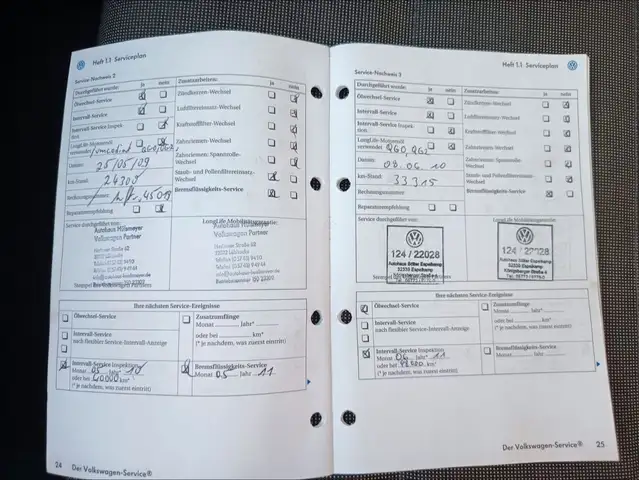 Heft 1.1 Serviceplan
Service-Nachweis 2
Durchgeführt wurde: ja nein
Zusatzarbeiten: ja nein
Ölwechsel-Service
Intervall-Service
Intervall-Service Inspek-
tion
LongLife-Motorenöl
verwendet
Datum: 25/05/09
km-Stand: 24305
Rechnungsnummer:
Reparaturempfehlung
Zündkerzen-Wechsel
Luftfiltereinsatz-Wechsel
Kraftstofffilter-Wechsel
Zahnriemen-Wechsel
Zahnriemen: Spannrolle-
Wechsel
Staub- und Pollenfiltereinsatz-
Wechsel
Bremsflüssigkeits-Service
Service durchgeführt von:
LongLife Mobilitätsgarantie:
Autohaus
Volkswagen Partner
Autohaus
Volkswagen Partner
Ihre nächsten Service-Ereignisse
Ölwechsel-Service
Intervall-Service
nach flexibler Service-Intervall-Anzeige
Zusatzumfänge
Monat Jahr*
oder bei km*
(* je nachdem, was zuerst eintritt)
Intervall-Service Inspektion
Monat 05 Jahr 10
oder bei 60.000 km*
(* je nachdem, was zuerst eintritt)
Bremsflüssigkeits-Service
Monat 05 Jahr 11
24 Der Volkswagen-Service®
Heft 1.1 Serviceplan
Service-Nachweis 3
Durchgeführt wurde: ja nein
Zusatzarbeiten: ja nein
Ölwechsel-Service
Intervall-Service
Intervall-Service Inspek-
tion
LongLife-Motorenöl
verwendet
Datum: 08.06.10
km-Stand: 33315
Rechnungsnummer:
Reparaturempfehlung
Zündkerzen-Wechsel
Luftfiltereinsatz-Wechsel
Kraftstofffilter-Wechsel
Zahnriemen-Wechsel
Zahnriemen: Spannrolle-
Wechsel
Staub- und Pollenfiltereinsatz-
Wechsel
Bremsflüssigkeits-Service
Service durchgeführt von:
LongLife Mobilitätsgarantie:
124 / 22028
32339 Espelkamp
124 / 22028
32339 Espelkamp
Ihre nächsten Service-Ereignisse
Ölwechsel-Service
Intervall-Service
nach flexibler Service-Intervall-Anzeige
Zusatzumfänge
Monat Jahr*
oder bei km*
(* je nachdem, was zuerst eintritt)
Intervall-Service Inspektion
Monat 06 Jahr* 11
oder bei km*
(* je nachdem, was zuerst eintritt)
Bremsflüssigkeits-Service
Monat Jahr
Der Volkswagen-Service® 25